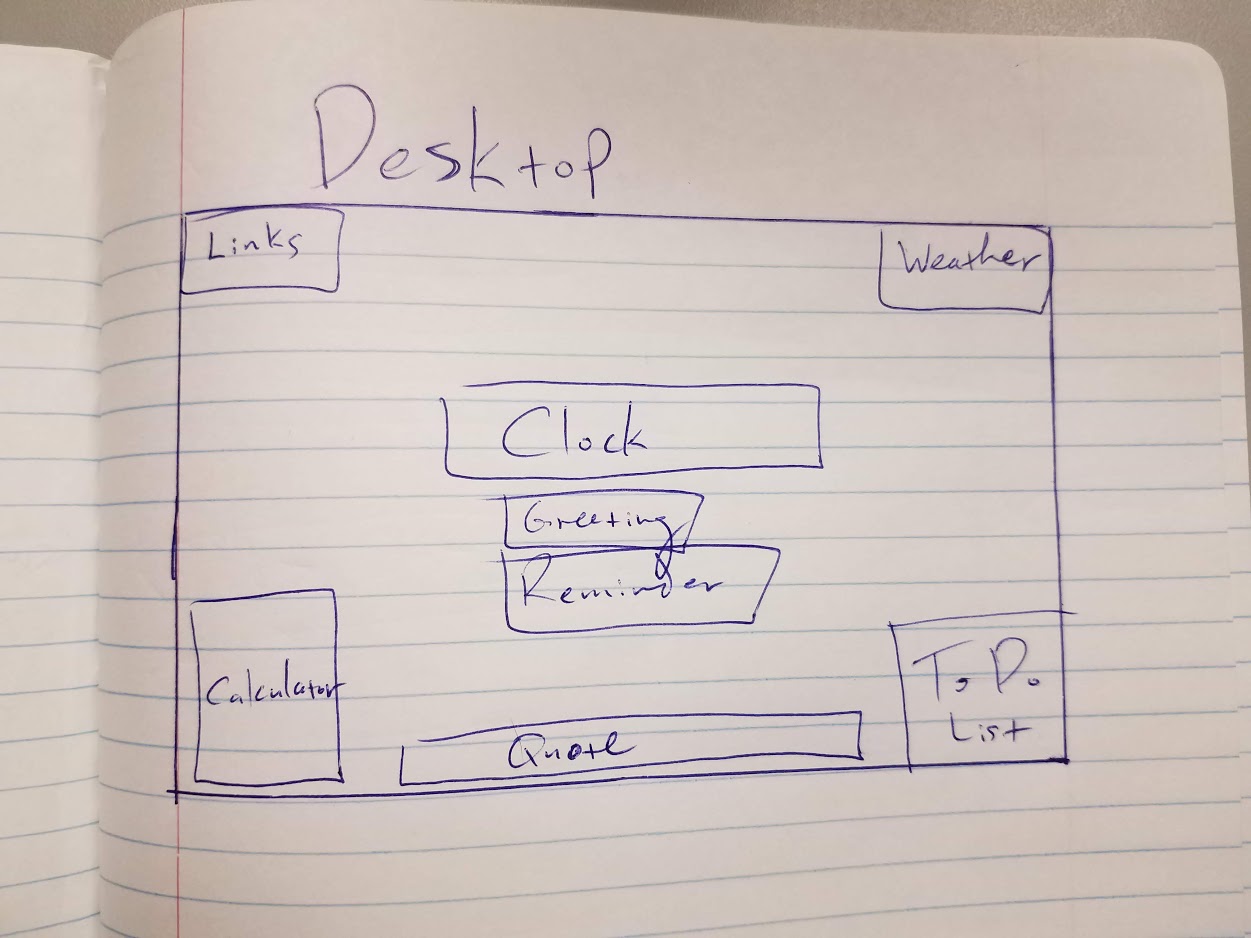 Desktop
Links
Weather
Clock
Greeting
Reminder
Calculator
To Do
List
Quote